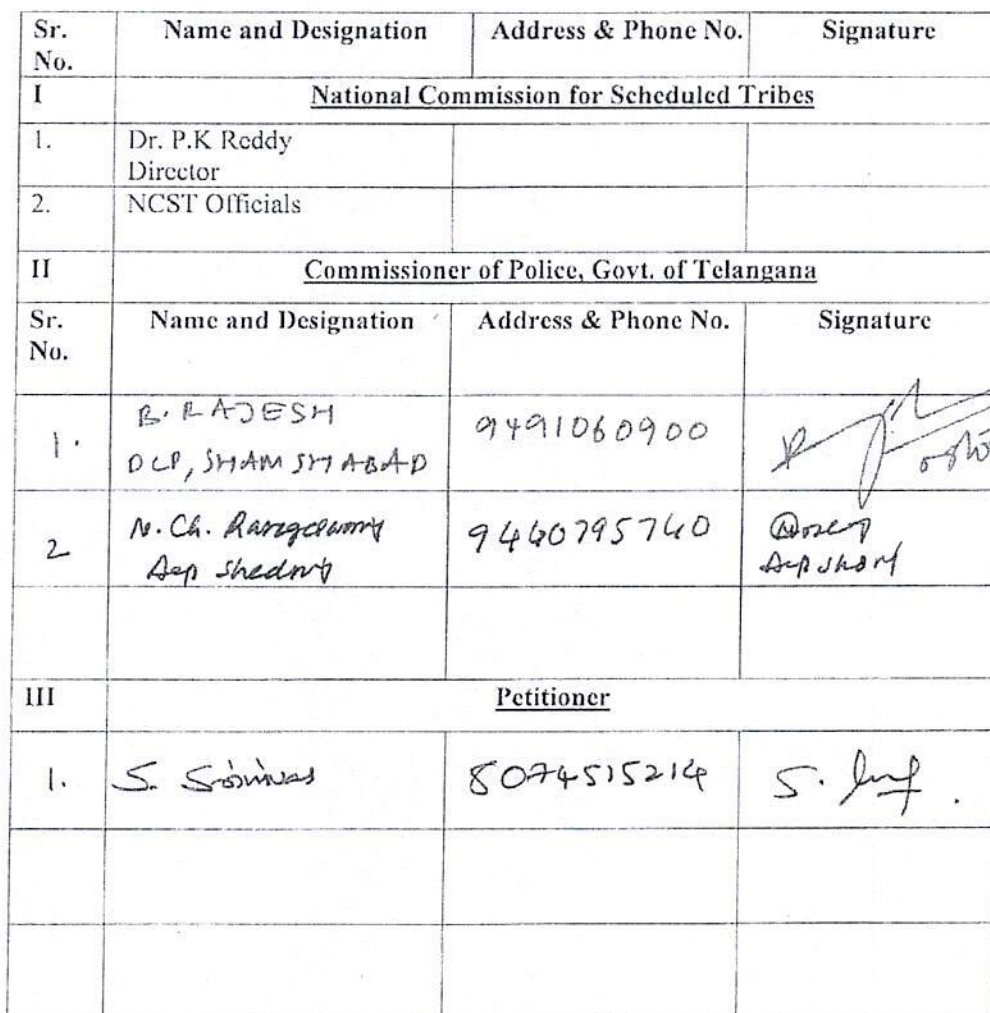 Sr. No. Name and Designation Address & Phone No. Signature
I National Commission for Scheduled Tribes
1. Dr. P.K Reddy
Director
2. NCST Officials
II Commissioner of Police, Govt. of Telangana
Sr. No. Name and Designation Address & Phone No. Signature
1. B. RAJESH 9491060900
DCP, SHAMSHABAD
2 N. Ch. 9440795740
III Petitioner
1. S. Srinivas 8074515214 S.